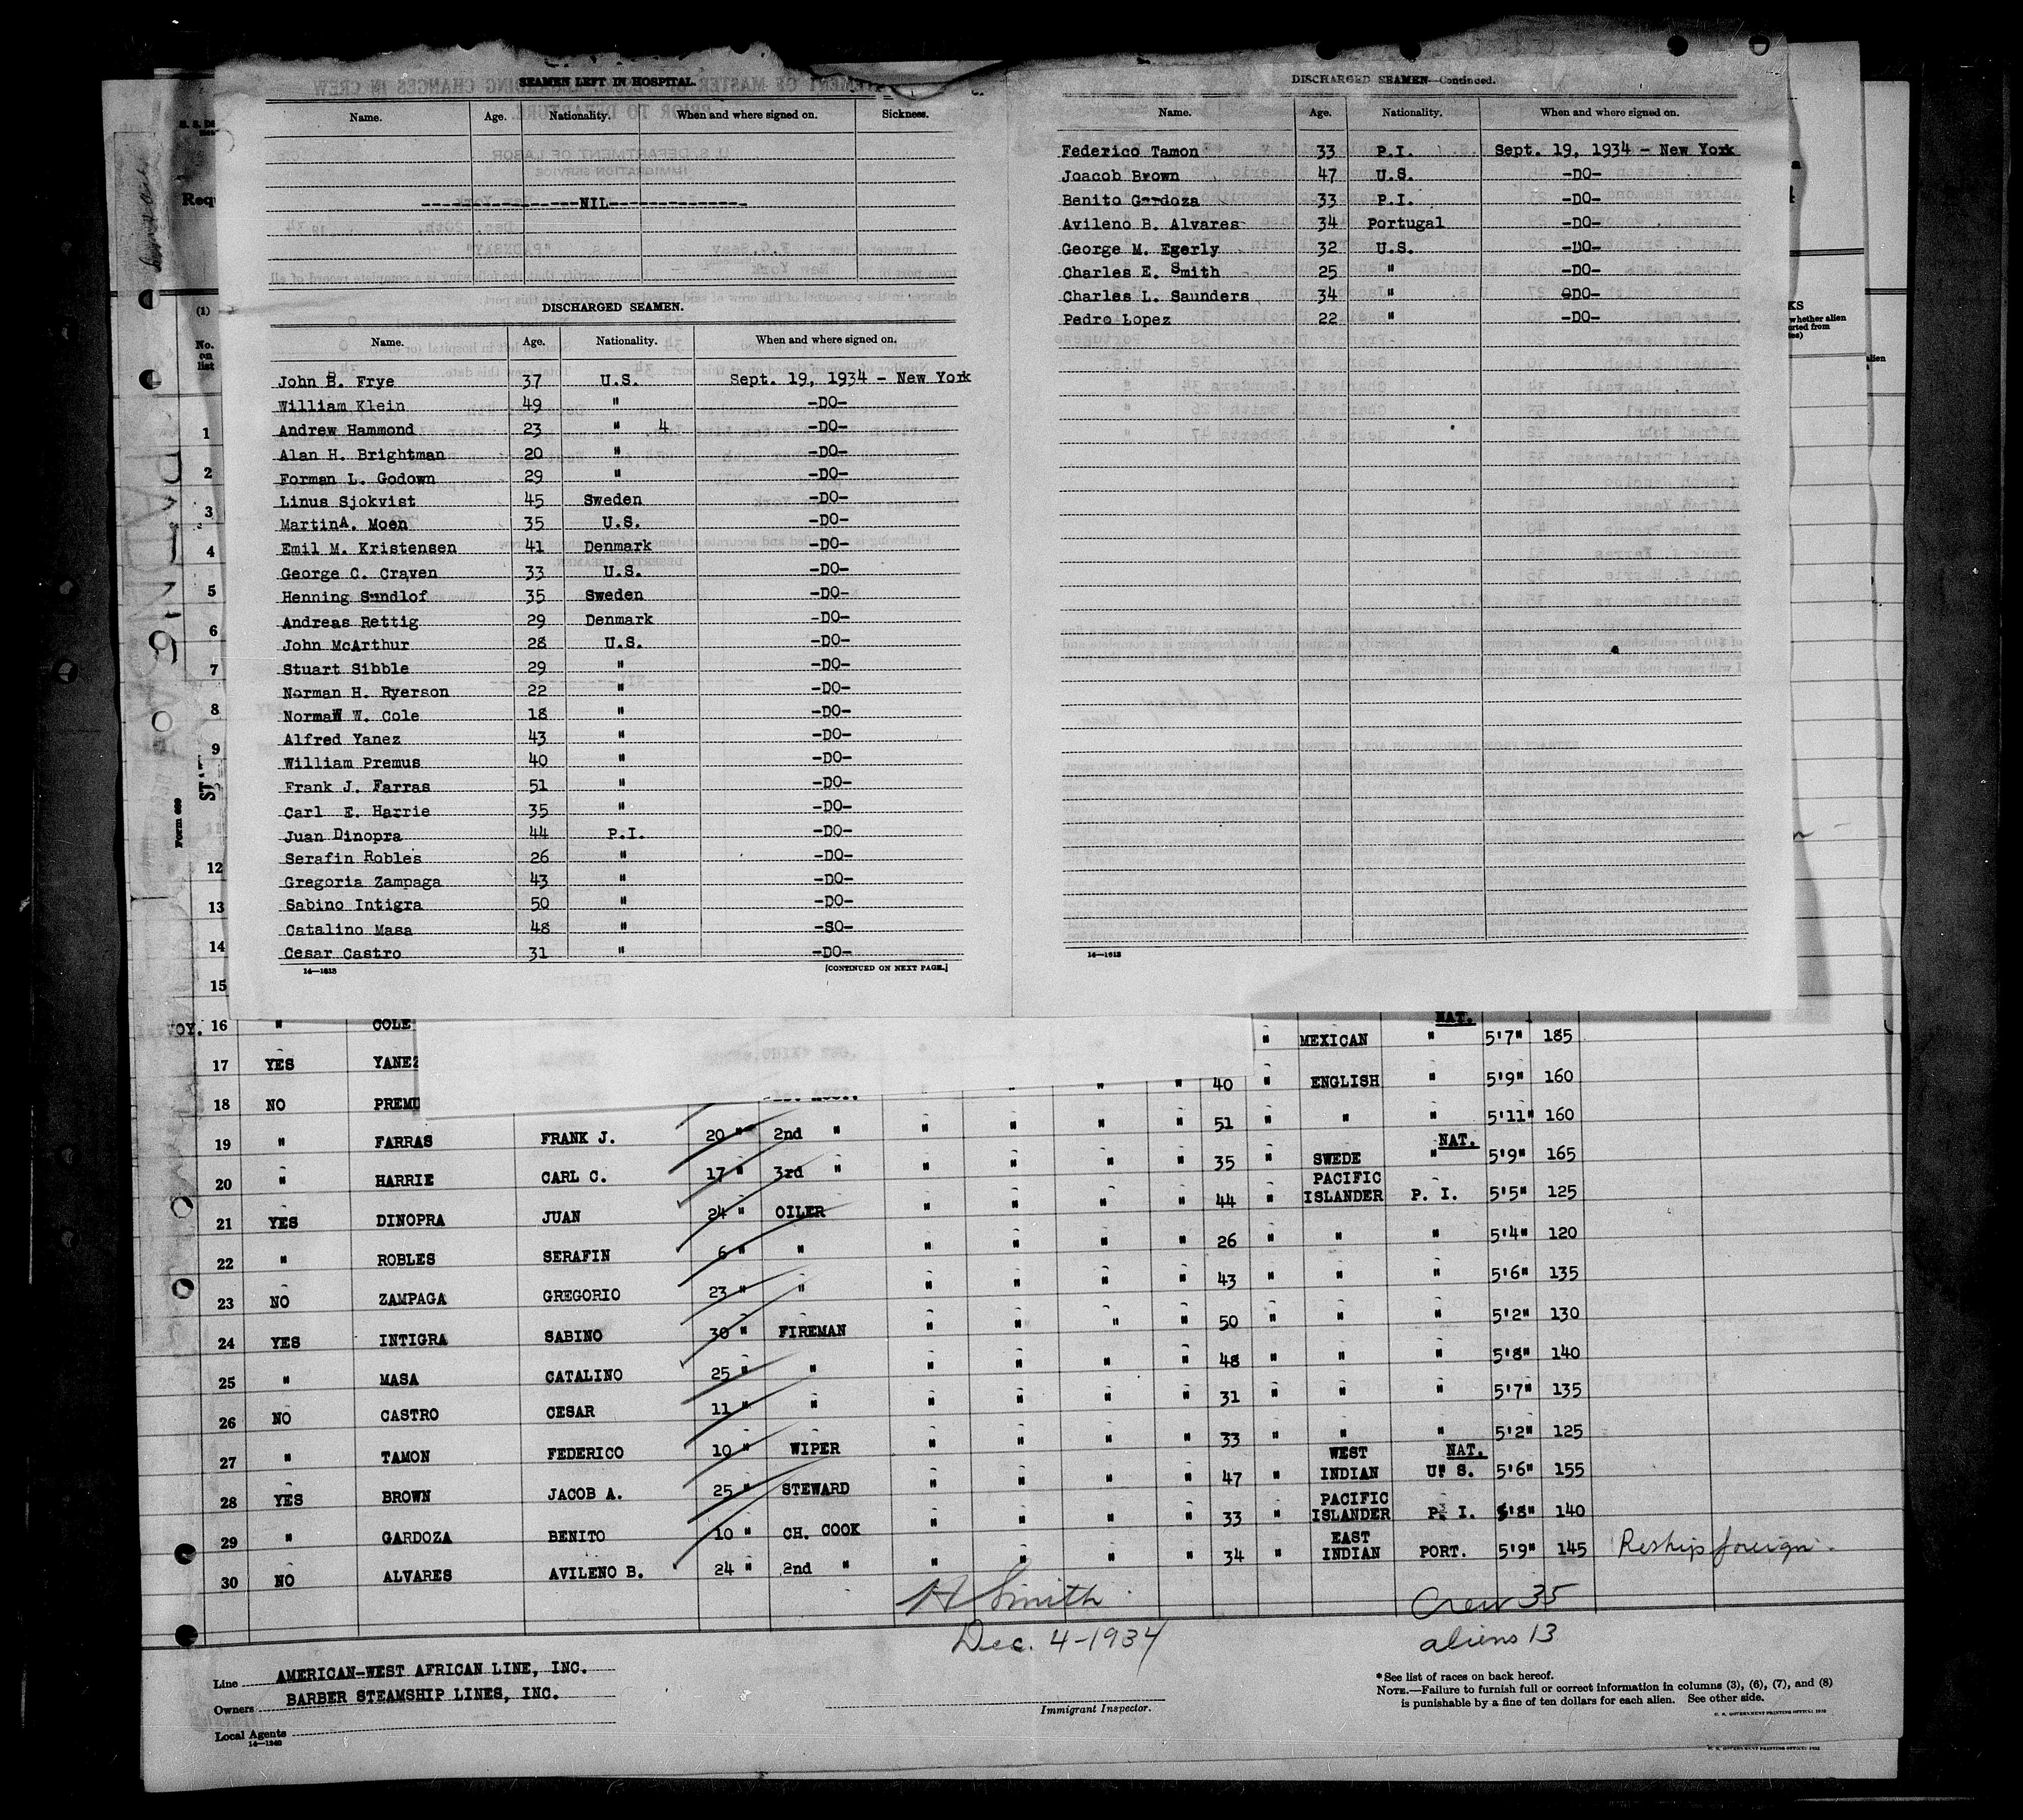 SEAMEN LEFT IN HOSPITAL.
Name. Age. Nationality. When and where signed on. Sickness.
NIL
DISCHARGED SEAMEN.
Name. Age. Nationality. When and where signed on.
John B. Frye 37 U.S. Sept. 19, 1934 - New York
William Klein 49 " -DO-
Andrew Hammond 23 " 4 -DO-
Alan H. Brightman 20 " -DO-
Forman L. Godown 29 " -DO-
Linus Sjokvist 45 Sweden -DO-
MartinA. Moen 35 U.S. -DO-
Emil M. Kristensen 41 Denmark -DO-
George C. Craven 33 U.S. -DO-
Henning Sundlof 35 Sweden -DO-
Andreas Rettig 29 Denmark -DO-
John McArthur 28 U.S. -DO-
Stuart Sibble 29 " -DO-
Norman H. Ryerson 22 " -DO-
Norman W. Cole 18 " -DO-
Alfred Yanez 43 " -DO-
William Premus 40 " -DO-
Frank J. Farras 51 " -DO-
Carl E. Harrie 35 " -DO-
Juan Dinopra 44 P.I. -DO-
Serafin Robles 26 " -DO-
Gregoria Zampaga 43 " -DO-
Sabino Intigra 50 " -DO-
Catalino Masa 48 " -SO-
Cesar Castro 31 " -DO-
14-1813 [CONTINUED ON NEXT PAGE.]
DISCHARGED SEAMEN—Continued.
Name. Age. Nationality. When and where signed on.
Federico Tamon 33 P.I. Sept. 19, 1934 - New York
Joacob Brown 47 U.S. -DO-
Benito Gardoza 33 P.I. -DO-
Avileno B. Alvares 34 Portugal -DO-
George M. Egerly 32 U.S. -DO-
Charles E. Smith 25 " -DO-
Charles L. Saunders 34 " -DO-
Pedro Lopez 22 " -DO-
14-1813
(1)
No. on list
1
2
3
4
5
6
7
8
9
12
13
14
15
Form 689
16 " COLE NAT.
17 YES YANEZ " MEXICAN " 5'7" 185
18 NO PREMU " " " 40 " ENGLISH " 5'9" 160
19 " FARRAS FRANK J. 20 " 2nd " " " " " 51 " " " 5'11" 160
NAT.
20 " HARRIE CARL C. 17 " 3rd " " " " " 35 " SWEDE " 5'9" 165
21 YES DINOPRA JUAN 24 " OILER " " " " 44 " PACIFIC ISLANDER P. I. 5'5" 125
22 " ROBLES SERAFIN 6 " " " " " " 26 " " " 5'4" 120
23 NO ZAMPAGA GREGORIO 23 " " " " " " 43 " " " 5'6" 135
24 YES INTIGRA SABINO 30 " FIREMAN " " " " 50 " " " 5'2" 130
25 " MASA CATALINO 25 " " " " " " 48 " " " 5'8" 140
26 NO CASTRO CESAR 11 " " " " " " 31 " " " 5'7" 135
27 " TAMON FEDERICO 10 " WIPER " " " " 33 " " " 5'2" 125
28 YES BROWN JACOB A. 25 " STEWARD " " " " 47 " WEST INDIAN NAT. U. S. 5'6" 155
29 " GARDOZA BENITO 10 " CH. COOK " " " " 33 " PACIFIC ISLANDER P. I. 5'8" 140
30 NO ALVARES AVILENO B. 24 " 2nd " " " " " 34 " EAST INDIAN PORT. 5'9" 145 Reship foreign
H Smith
Crew 35
Dec. 4-1934
aliens 13
Line AMERICAN-WEST AFRICAN LINE, INC.
Owners BARBER STEAMSHIP LINES, INC.
Local Agents
14-1240
Immigrant Inspector.
*See list of races on back hereof.
NOTE.—Failure to furnish full or correct information in columns (3), (6), (7), and (8)
is punishable by a fine of ten dollars for each alien. See other side.
U. S. GOVERNMENT PRINTING OFFICE: 1932